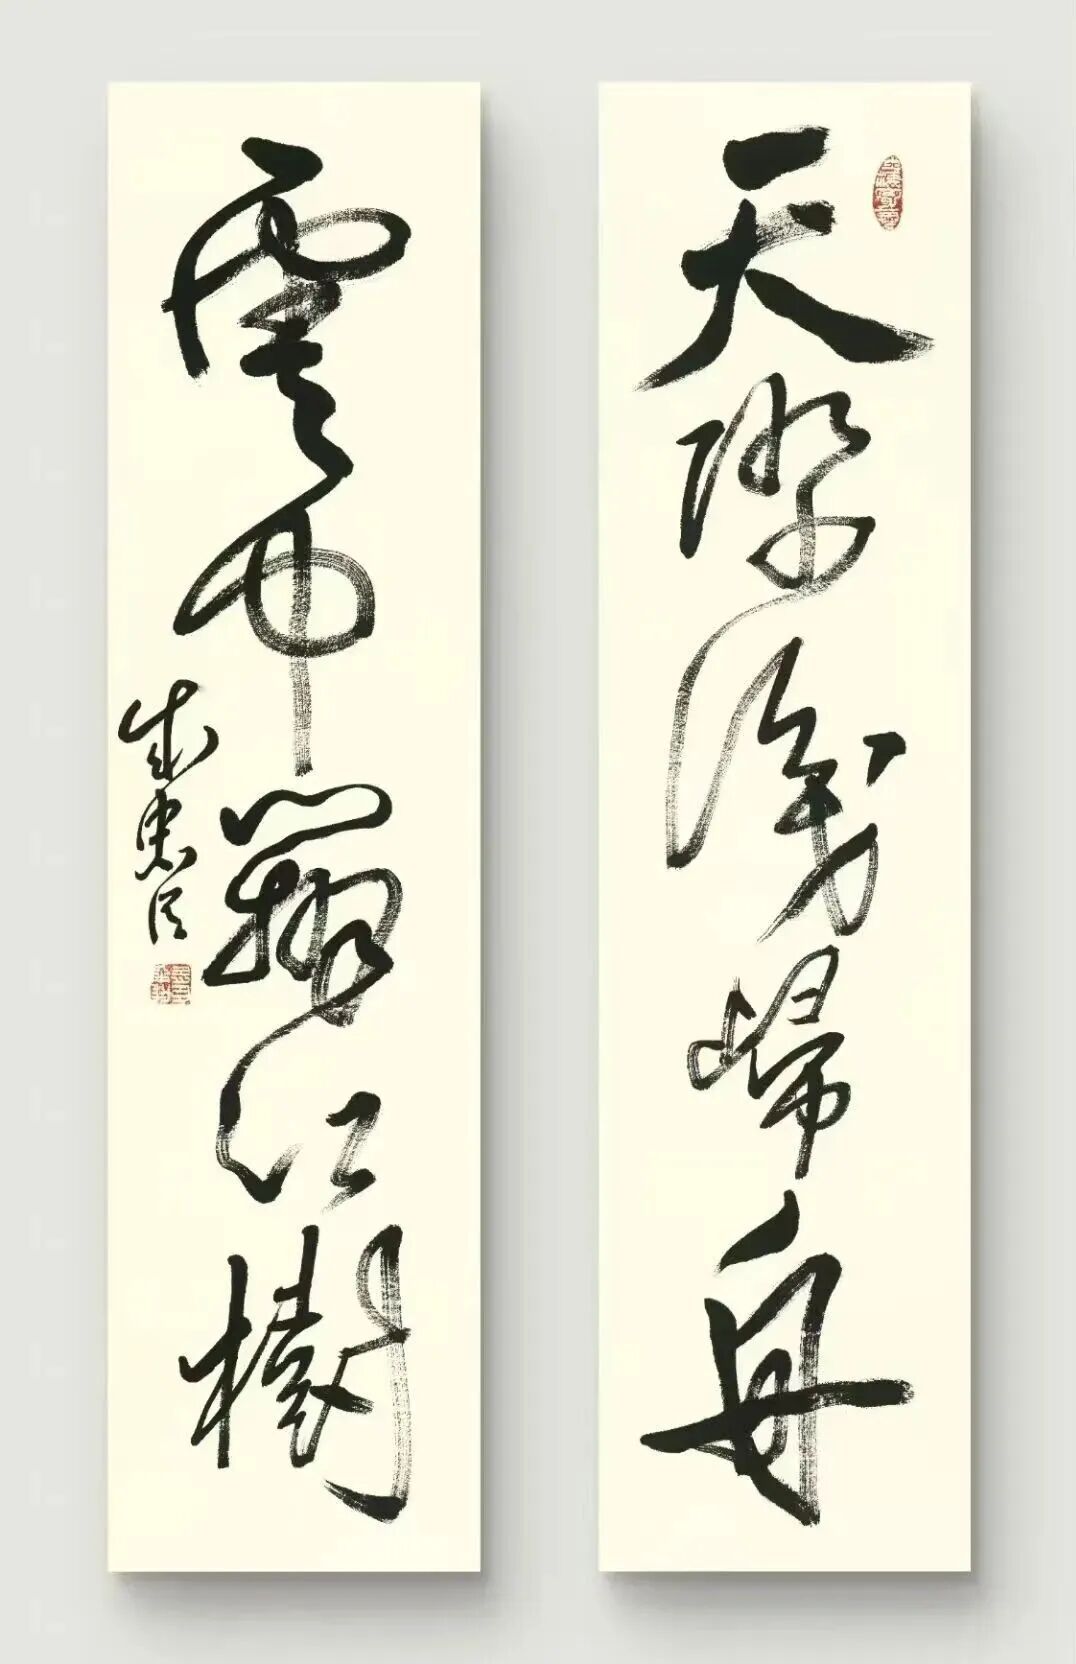 天際識歸舟
雲中辨江樹